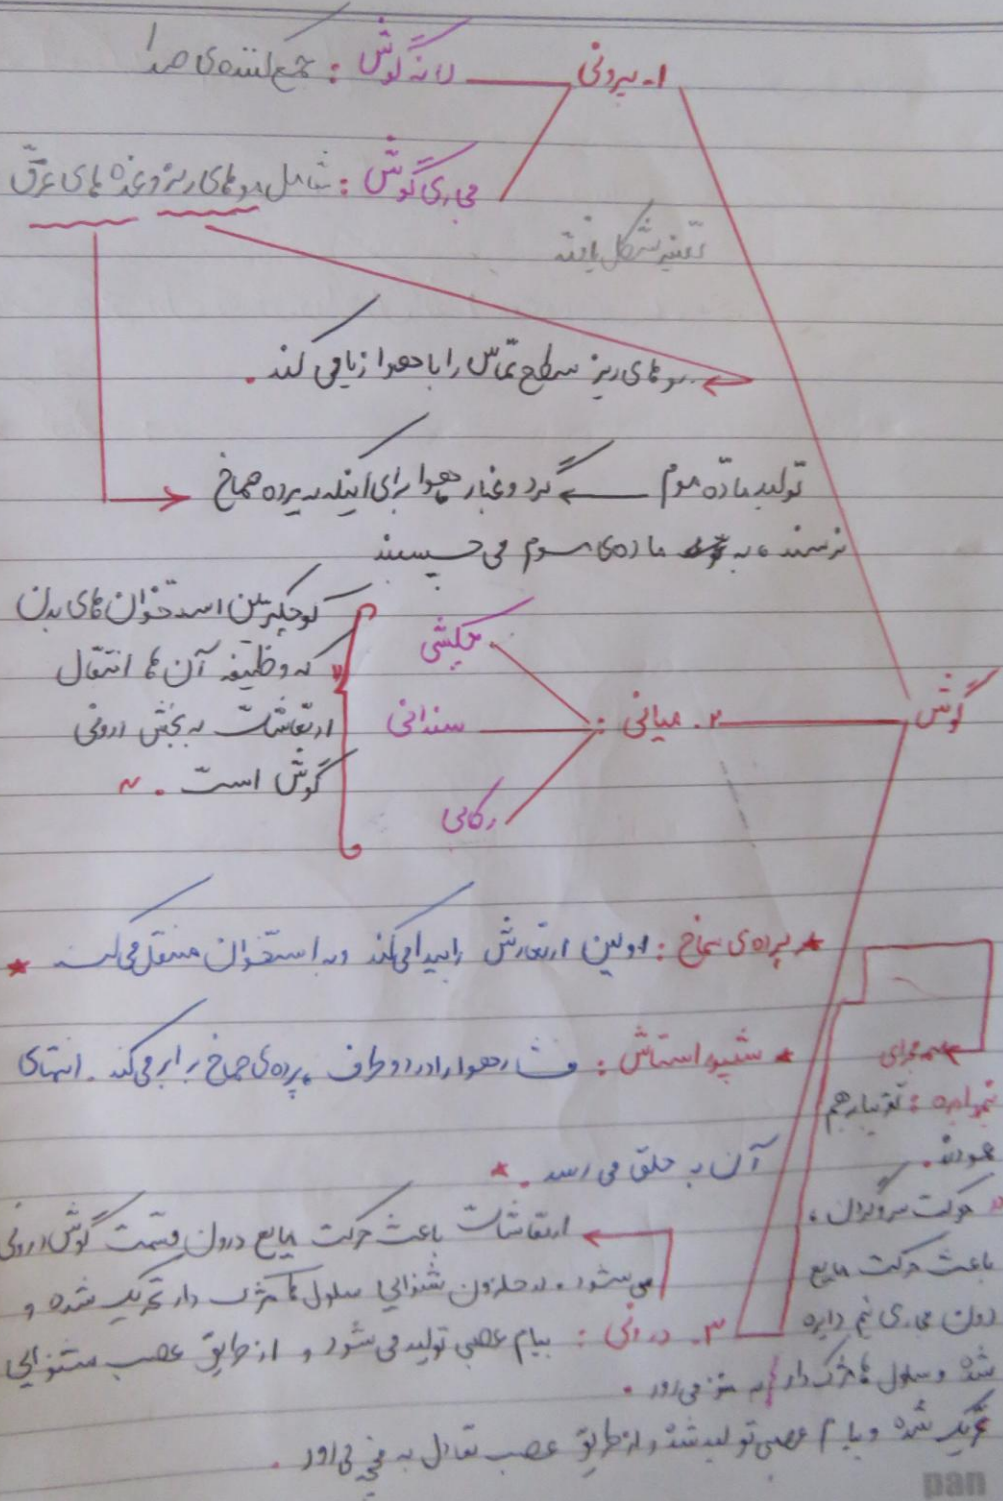 ۱- بیرونی
لاله گوش : جمع کننده ی صدا
مجاری گوش : شامل موهای ریز و غده های عرق
تغییر شکل یافته
موهای ریز سطح تماس را با هوا زیاد می کند .
تولید ماده موم ← گرد و غبار هوا برای اینکه به پرده صماخ
نرسند ، به ماده ی موم می چسبند
گوش
۲- میانی :
چکشی
سندانی
رکابی
کوچکترین استخوان های بدن
که وظیفه آن ها انتقال
ارتعاشات به بخش درونی
گوش است .
* پرده ی صماخ : اولین ارتعاش را پیدا می کند و به استخوان منتقل می کند *
* شیپور استاش : فشار هوا را در دو طرف پرده ی صماخ برابر می کند . انتهای
آن به حلق می رسد . *
۳- درونی :
ارتعاشات باعث حرکت مایع درون قسمت گوش درونی
می شود . در حلزون شنوایی سلول ها مژک دار تحریک شده و
پیام عصبی تولید می شود و از طریق عصب شنوایی
به مغز می رود .
سه مجرای
نیم دایره : تقریبا بر هم
عمودند .
حرکت سر و گردن ،
باعث حرکت مایع
درون مجاری نیم دایره
شده و سلول ها مژک دار
تحریک شده و پیام عصبی تولید شده و از طریق عصب تعادل به مخچه می رود .
pan